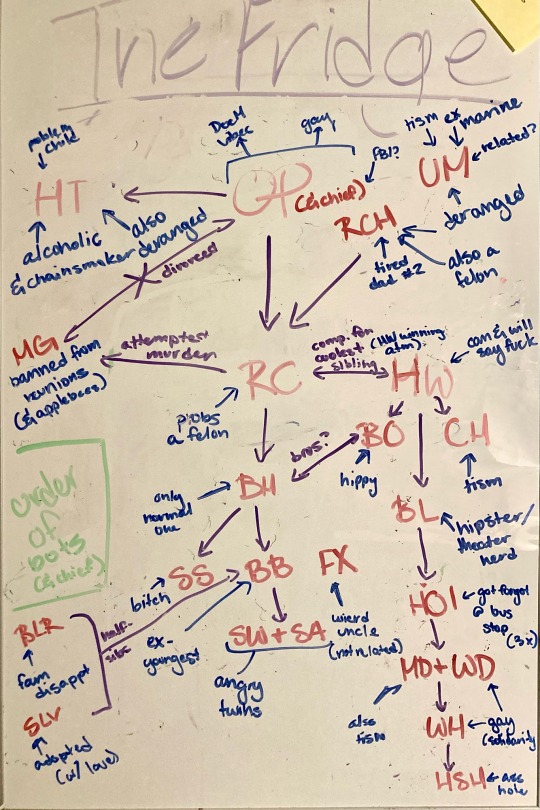 The Fridge
problem
child
DccH
vibec
gay
FBI?
tism ex marine
related?
HT
GP
(& chief)
UM
RCH
alcoholic
& chainsmoker
also
deranged
deranged
tired
dad #2
also a
felon
divorced
MG
banned from
reunions
(& applebees)
attempted
murder
RC
comp. for
coolest
sibling
(HW winning
atm)
HW
can & will
say fuck
probs
a felon
BO
CH
bros?
hippy
tism
order
of
bots
(& chief)
only
normal
one
BH
BL
hipster/
theater
nerd
SS
BB
FX
bitch
HOI
got forgot
@ bus
stop
(3x)
BLR
half-
sibs
ex-
youngest
SW + SA
wierd
uncle
(not related)
fam
disappt
MD + WD
angry
twins
SLV
adopted
(w/ love)
also
tism
WH
gay
(solidarity
HSH
ass
hole